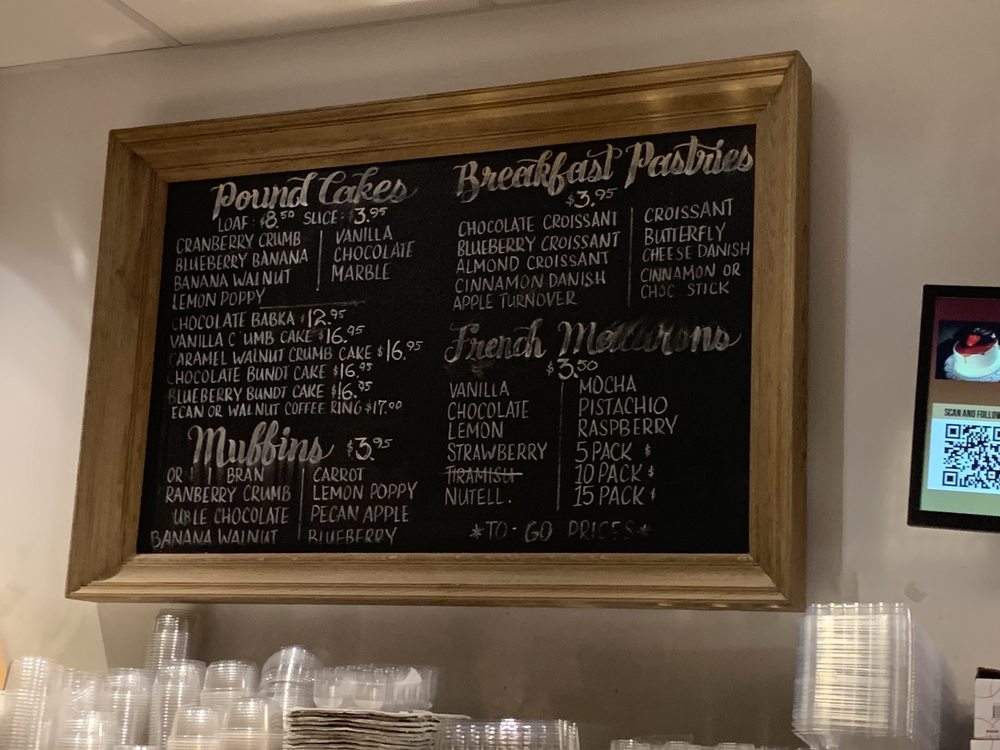 Pound Cakes
LOAF: $8.50 SLICE: $3.95
CRANBERRY CRUMB
BLUEBERRY BANANA
BANANA WALNUT
LEMON POPPY
VANILLA
CHOCOLATE
MARBLE
CHOCOLATE BABKA $12.95
VANILLA C UMB CAKE $16.95
CARAMEL WALNUT CRUMB CAKE $16.95
CHOCOLATE BUNDT CAKE $16.95
BLUEBERRY BUNDT CAKE $16.95
ECAN OR WALNUT COFFEE RING $17.00
Muffins $3.95
BRAN
RANBERRY CRUMB
UBLE CHOCOLATE
BANANA WALNUT
CARROT
LEMON POPPY
PECAN APPLE
BLUEBERRY
Breakfast Pastries
$3.95
CHOCOLATE CROISSANT
BLUEBERRY CROISSANT
ALMOND CROISSANT
CINNAMON DANISH
APPLE TURNOVER
CROISSANT
BUTTERFLY
CHEESE DANISH
CINNAMON OR
CHOC STICK
French Macarons
$3.50
VANILLA
CHOCOLATE
LEMON
STRAWBERRY
TIRAMISU
NUTELL.
MOCHA
PISTACHIO
RASPBERRY
5 PACK $
10 PACK $
15 PACK $
*TO-GO PRICES*
SCAN AND FOLLOW